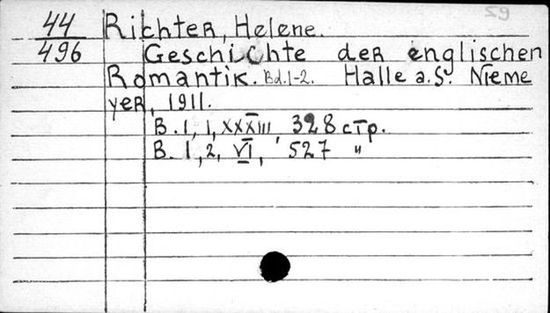 44 Richter, Helene.
496 Geschichte der englischen
Romantik. Bd. 1-2. Halle a. S. Nieme
yer, 1911.
B. I, 1, XXXIII, 328 стр.
B. I, 2, VI, 527 "